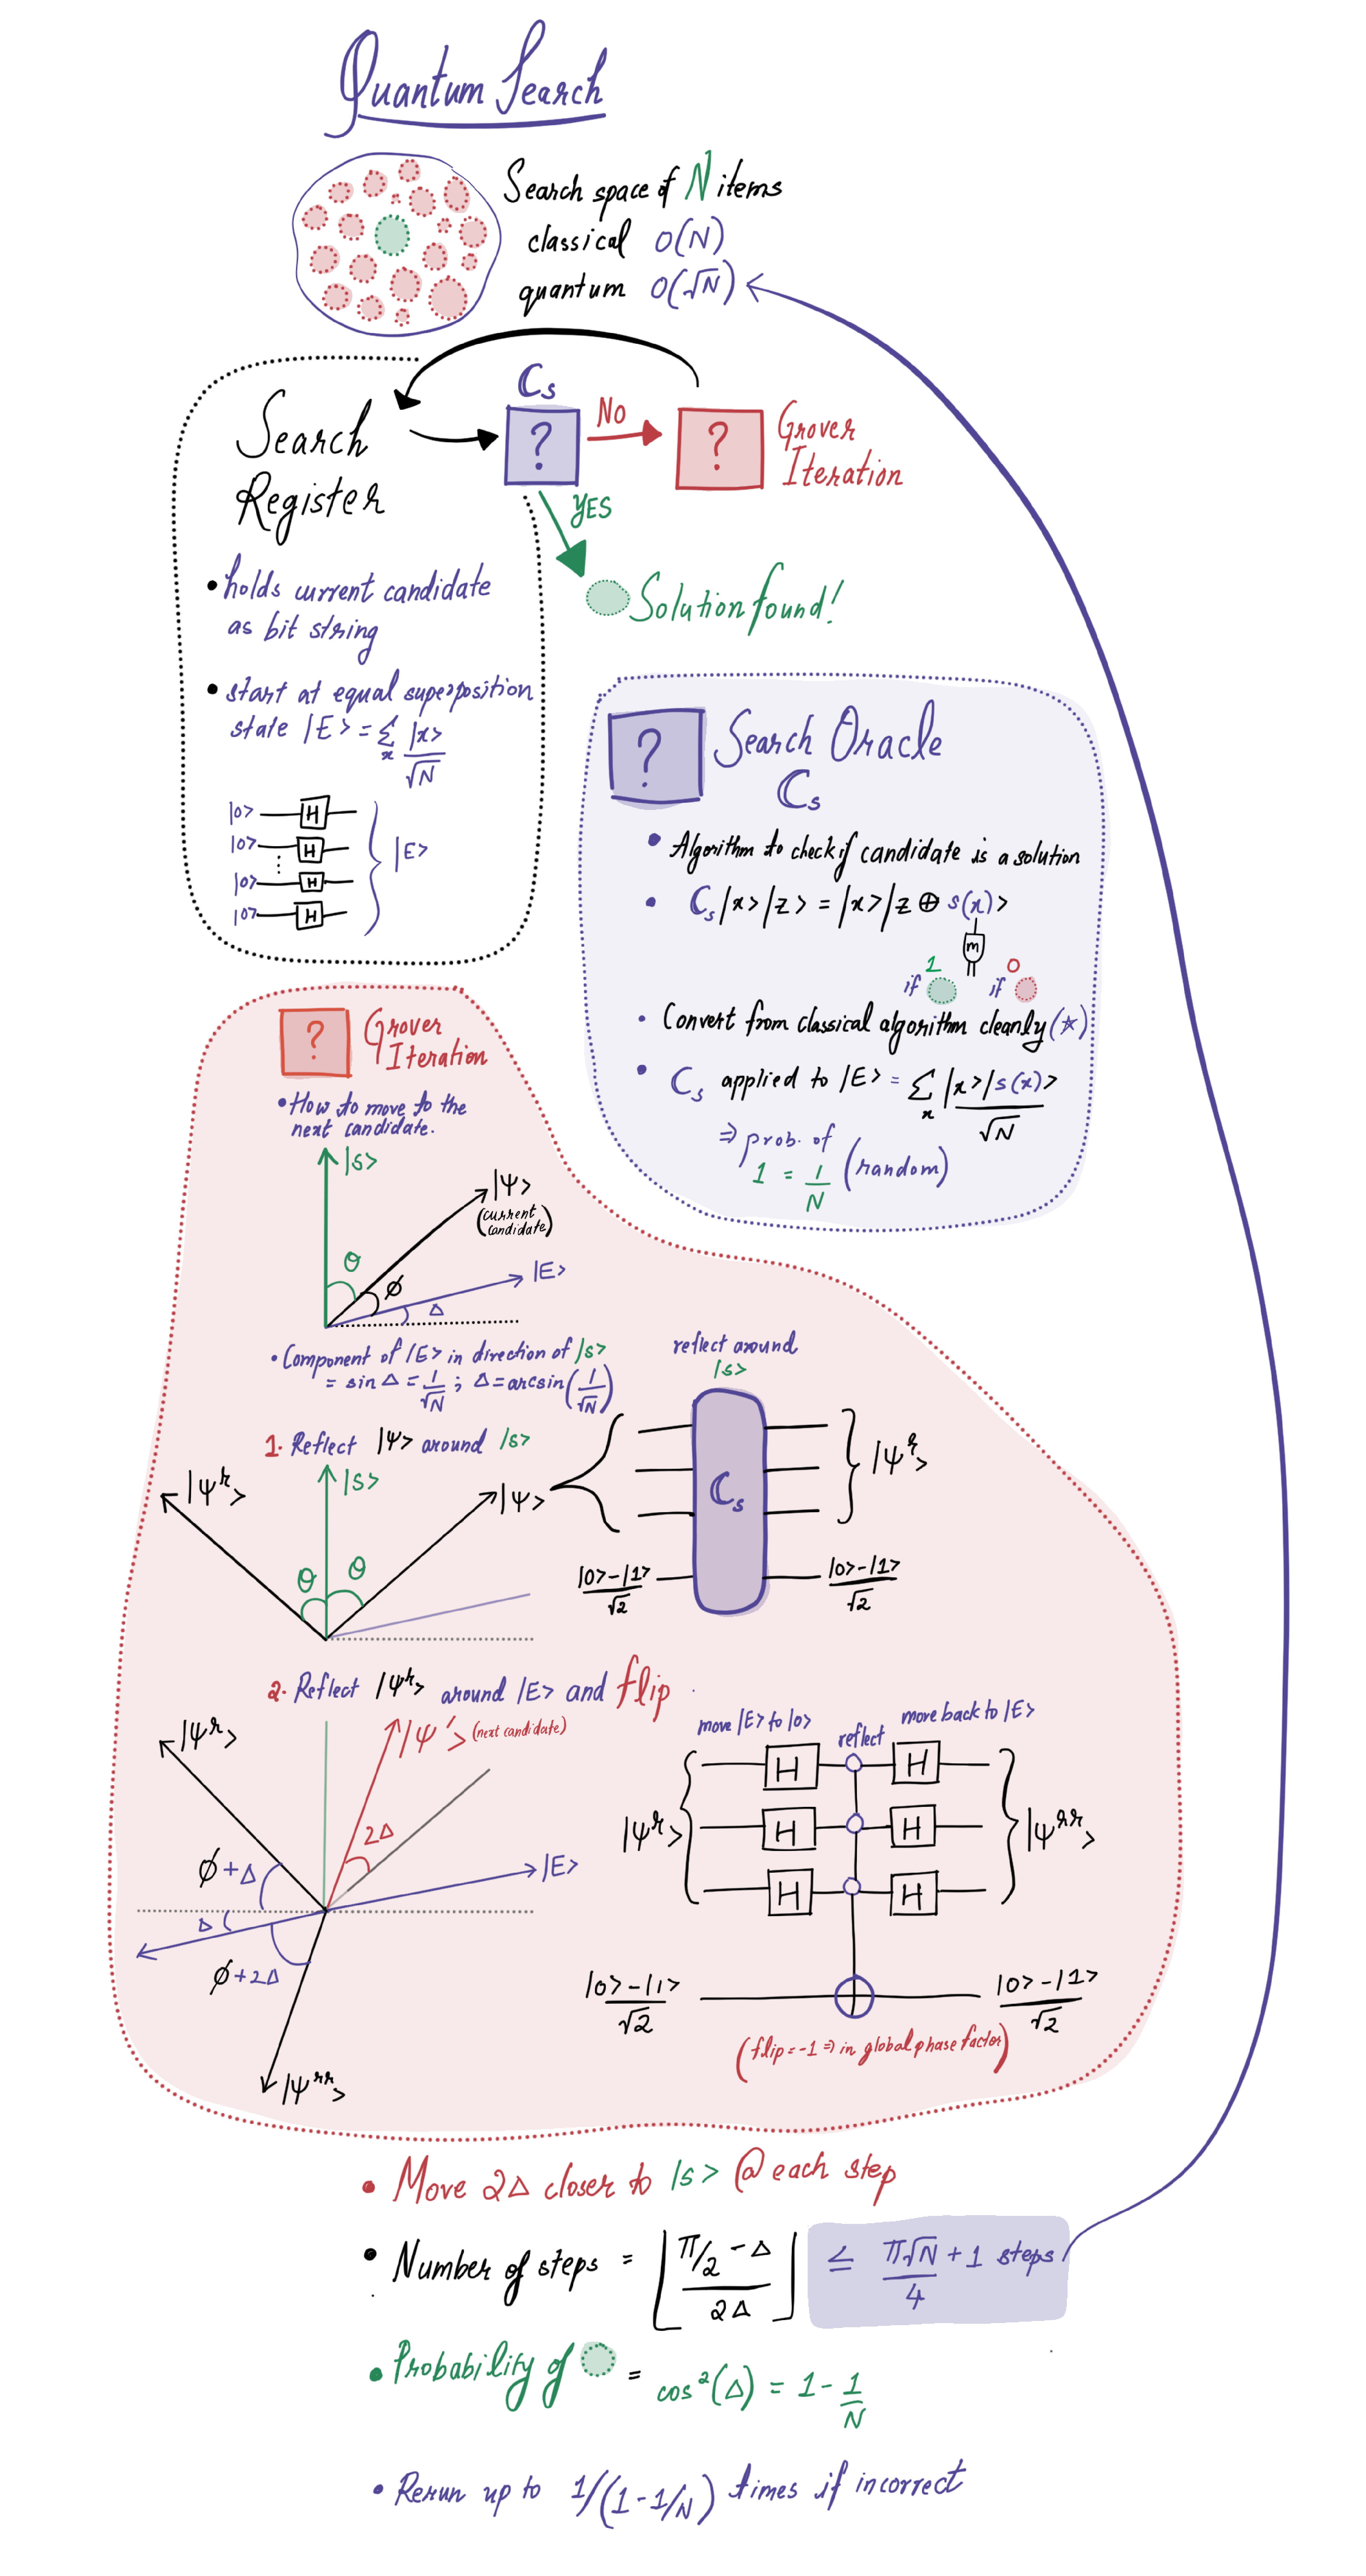 Quantum Search
Search space of N items
classical O(N)
quantum O(√N)
ℂs
?
No
?
Grover
Iteration
YES
Solution found!
Search
Register
• holds current candidate
as bit string
• start at equal superposition
state |E> = Σx |x>/√N
|0> H
|0> H
⋮
|0> H
|0> H
|E>
? Search Oracle
ℂs
• Algorithm to check if candidate is a solution
• ℂs |x>|z> = |x>|z ⊕ s(x)>
m
1 if
0 if
• Convert from classical algorithm cleanly (*)
• ℂs applied to |E> = Σx |x>|s(x)>/√N
⇒ prob. of
1 = 1/N (random)
? Grover
Iteration
• How to move to the
next candidate.
|s>
|ψ>
(current
candidate)
θ
ϕ
|E>
Δ
• Component of |E> in direction of |s>
= sin Δ = 1/√N ; Δ = arcsin(1/√N)
reflect around
|s>
1. Reflect |ψ> around |s>
|ψʳ>
|s>
|ψ>
θ θ
ℂs
|ψʳ>
|0>-|1>/√2
|0>-|1>/√2
2. Reflect |ψʳ> around |E> and flip
|ψʳ>
|ψ'> (next candidate)
2Δ
ϕ+Δ
|E>
Δ
ϕ+2Δ
|ψʳʳ>
move |E> to |0>
reflect
move back to |E>
|ψʳ>
H H
H H
H H
|ψʳʳ>
|0>-|1>/√2
|0>-|1>/√2
(flip = -1 ⇒ in global phase factor)
• Move 2Δ closer to |s> @ each step
• Number of steps = ⌊(π/2 - Δ)/2Δ⌋ ≤ π√N/4 + 1 steps
• Probability of = cos²(Δ) = 1 - 1/N
• Rerun up to 1/(1-1/N) times if incorrect